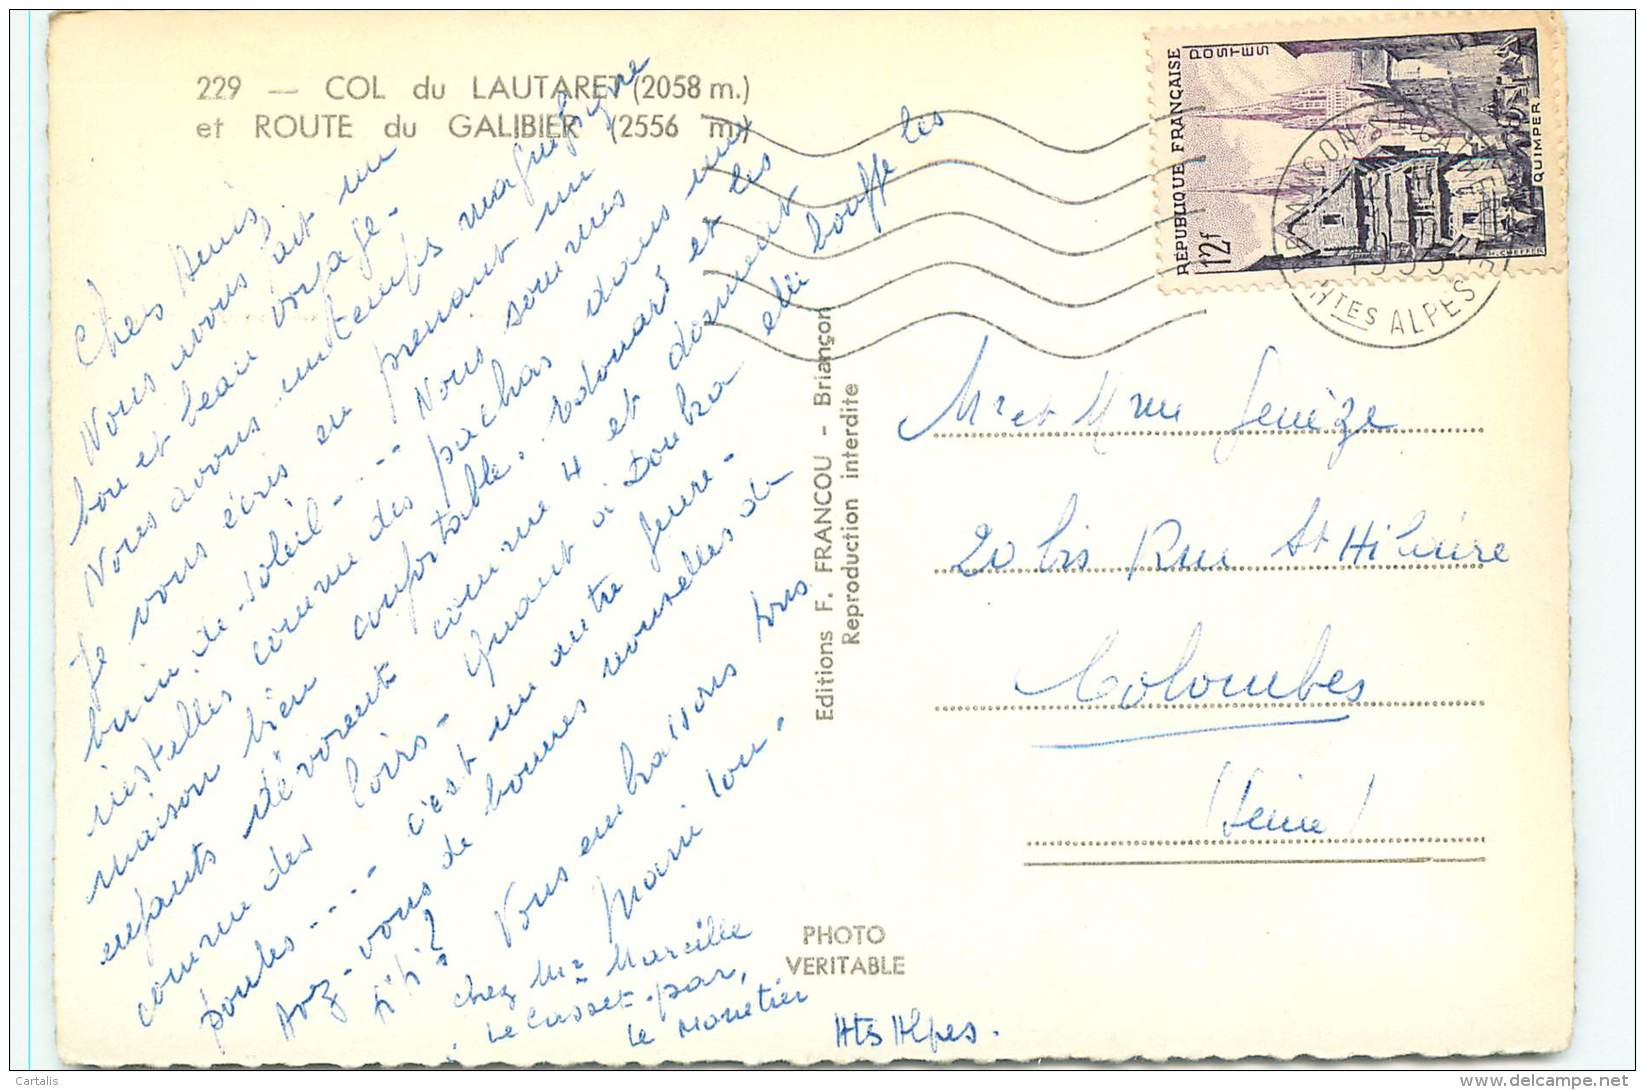 229 — COL du LAUTARET (2058 m.)
et ROUTE du GALIBIER (2556 m.)
Chers Amis.
Nous avons fait un
bon et beau voyage-
Nous avons un temps magnifique
Je vous écris en prenant un
bain de soleil-... Nous sommes
installés comme des pachas dans une
maison bien confortable. Edouard et les
enfants dévorent comme 4 et dorment
comme des loirs- Quant à Douba elle bouffe les
poules.... c'est un autre genre-
Avez-vous de bonnes nouvelles de
Fifi? Vous embrassons tous
Marilou.
chez Mr Marcille
Le Casset par,
le Monétier
Htes Alpes.
Editions F. FRANCOU - Briançon
Reproduction interdite
PHOTO
VERITABLE
REPUBLIQUE FRANÇAISE
POSTES
12f
QUIMPER
H.CHEFFER
BRIANÇON
HTES ALPES
Mr et Mme Genèze
20 bis Rue St Hilaire
Colombes
(Seine)
© Cartalis
www.delcampe.net